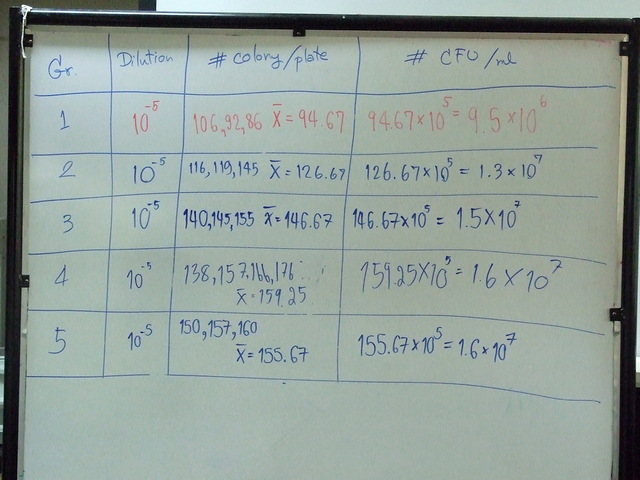 Gr. Dilution # colony/plate # CFU/ml
1 10⁻⁵ 106,92,86 x̄ = 94.67 94.67×10⁵ = 9.5×10⁶
2 10⁻⁵ 116,119,145 x̄ = 126.67 126.67×10⁵ = 1.3×10⁷
3 10⁻⁵ 140,145,155 x̄ = 146.67 146.67×10⁵ = 1.5×10⁷
4 10⁻⁵ 138,157,166,176 159.25×10⁵ = 1.6×10⁷
x̄ = 159.25
5 10⁻⁵ 150,157,160 155.67×10⁵ = 1.6×10⁷
x̄ = 155.67